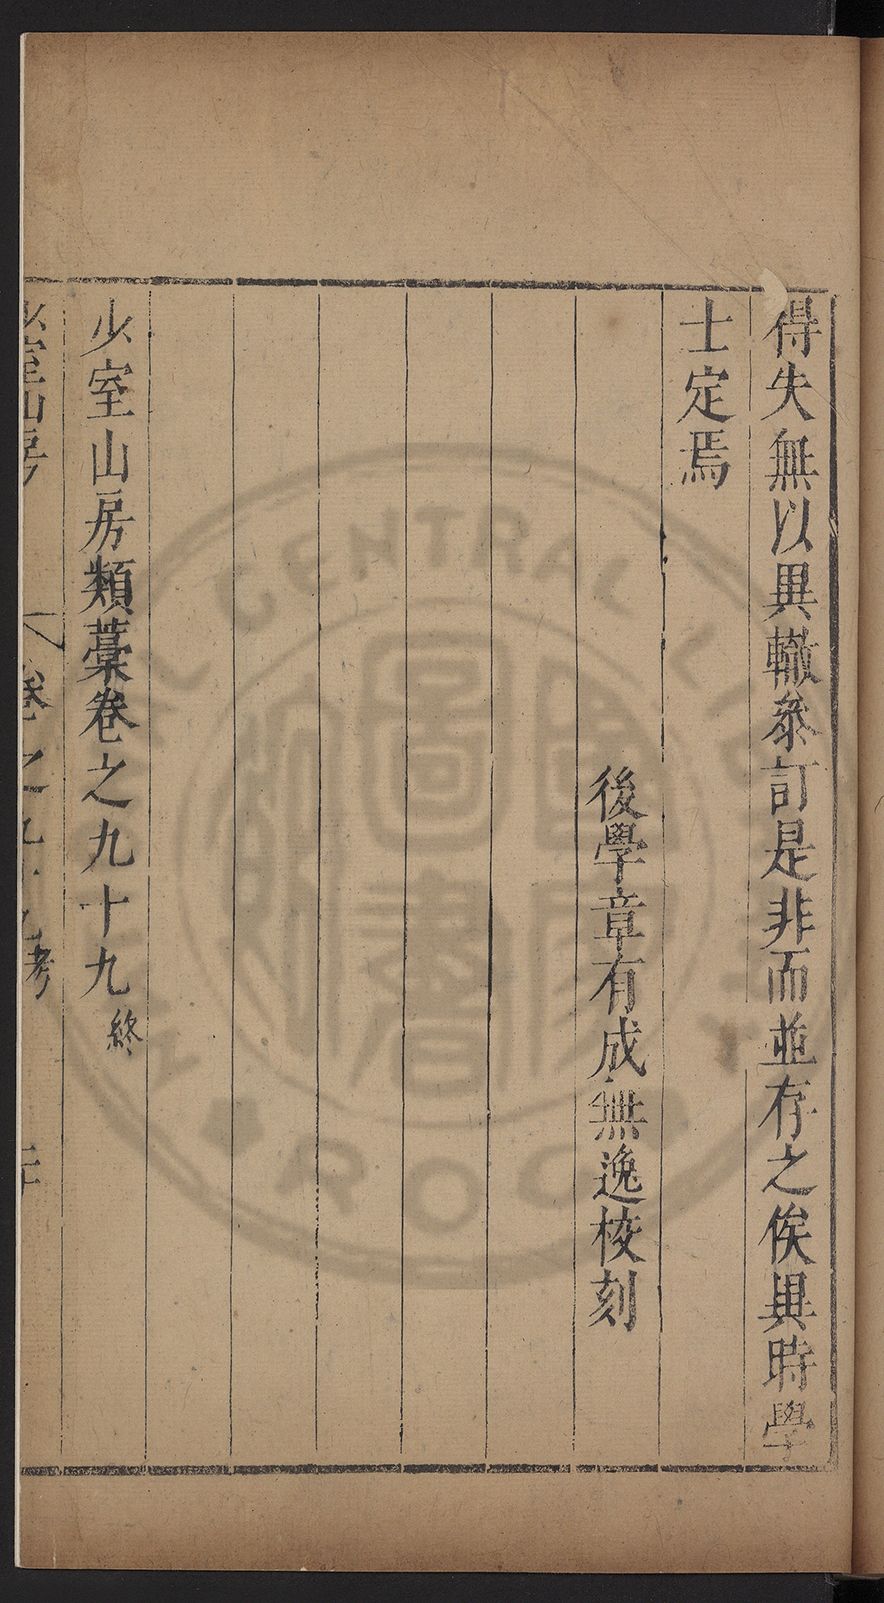 得失無以異轍叅訂是非而並存之俟異時學
士定焉
後學章有成無逸校刻
少室山房類藁卷之九十九終
少室山房
卷之九十九 考
二十